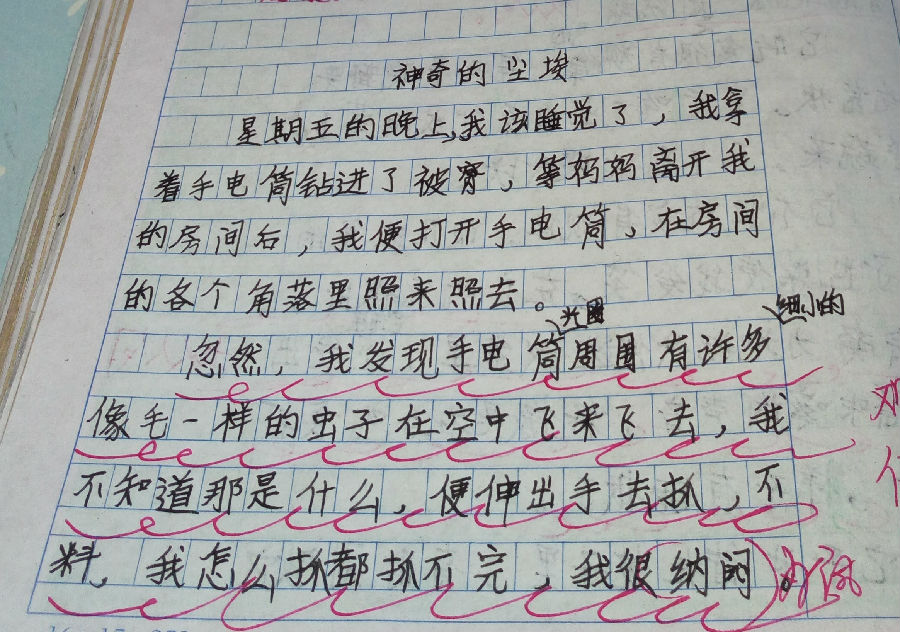 神奇的尘埃
星期五的晚上,我该睡觉了，我拿
着手电筒钻进了被窝，等妈妈离开我
的房间后，我便打开手电筒，在房间
的各个角落里照来照去。
光圈 细小的
忽然，我发现手电筒周围有许多
像毛一样的虫子在空中飞来飞去，我
不知道那是什么，便伸出手去抓，不
料，我怎么抓都抓不完，我很纳闷。